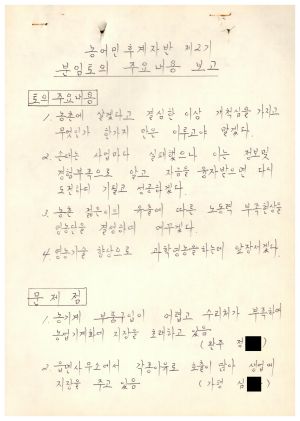 농어민후계자반 제2기
분임토의 주요내용 보고
토의 주요내용
1. 농촌에 살겠다고 결심한 이상 개척심을 가지고
무엇인가 한가지 만은 이루고야 말겠다.
2. 손대는 사업마다 실패했으나 이는 정보및
경험부족으로 알고 자금을 융자받으면 다시
도전하여 기필코 성공하겠다.
3. 농촌 젊은이의 유출에 따른 노동력 부족현상을
영농단을 결성하여 메꾸겠다.
4. 영농기술 향상으로 과학영농을하는데 앞장서겠다.
문제점
1. 농기계 부품구입이 어렵고 수리처가 부족하여
농업기계화에 지장을 초래하고 있음
(완주 정
2. 읍면사무소에서 각종이유로 호출이 많아 생업에
지장을 주고 있음 (가평 심